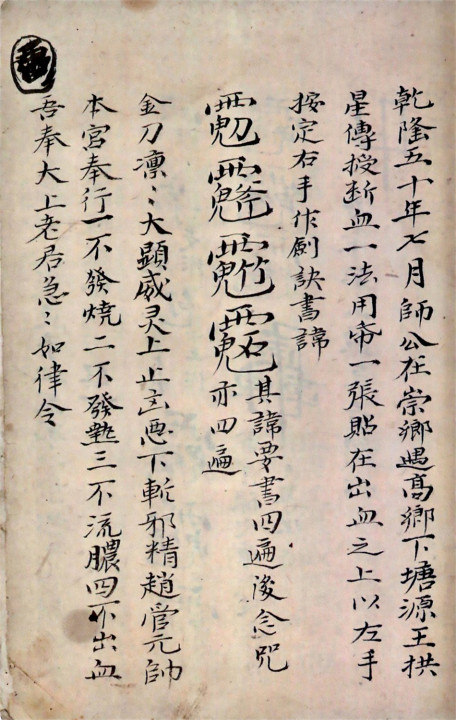 乾隆五十年七月師公在崇鄉遇高鄉下塘源王拱
星傳授断血一法用帋一張貼在出血之上以左手
按定右手作劍訣書諱
其諱要書四遍後念咒
亦四遍
金刀凛〻大顯威灵上止㐫悪下斬邪精趙管元帥
本宮奉行一不發燒二不發熱三不流膿四不出血
吾奉大上老君急〻如律令